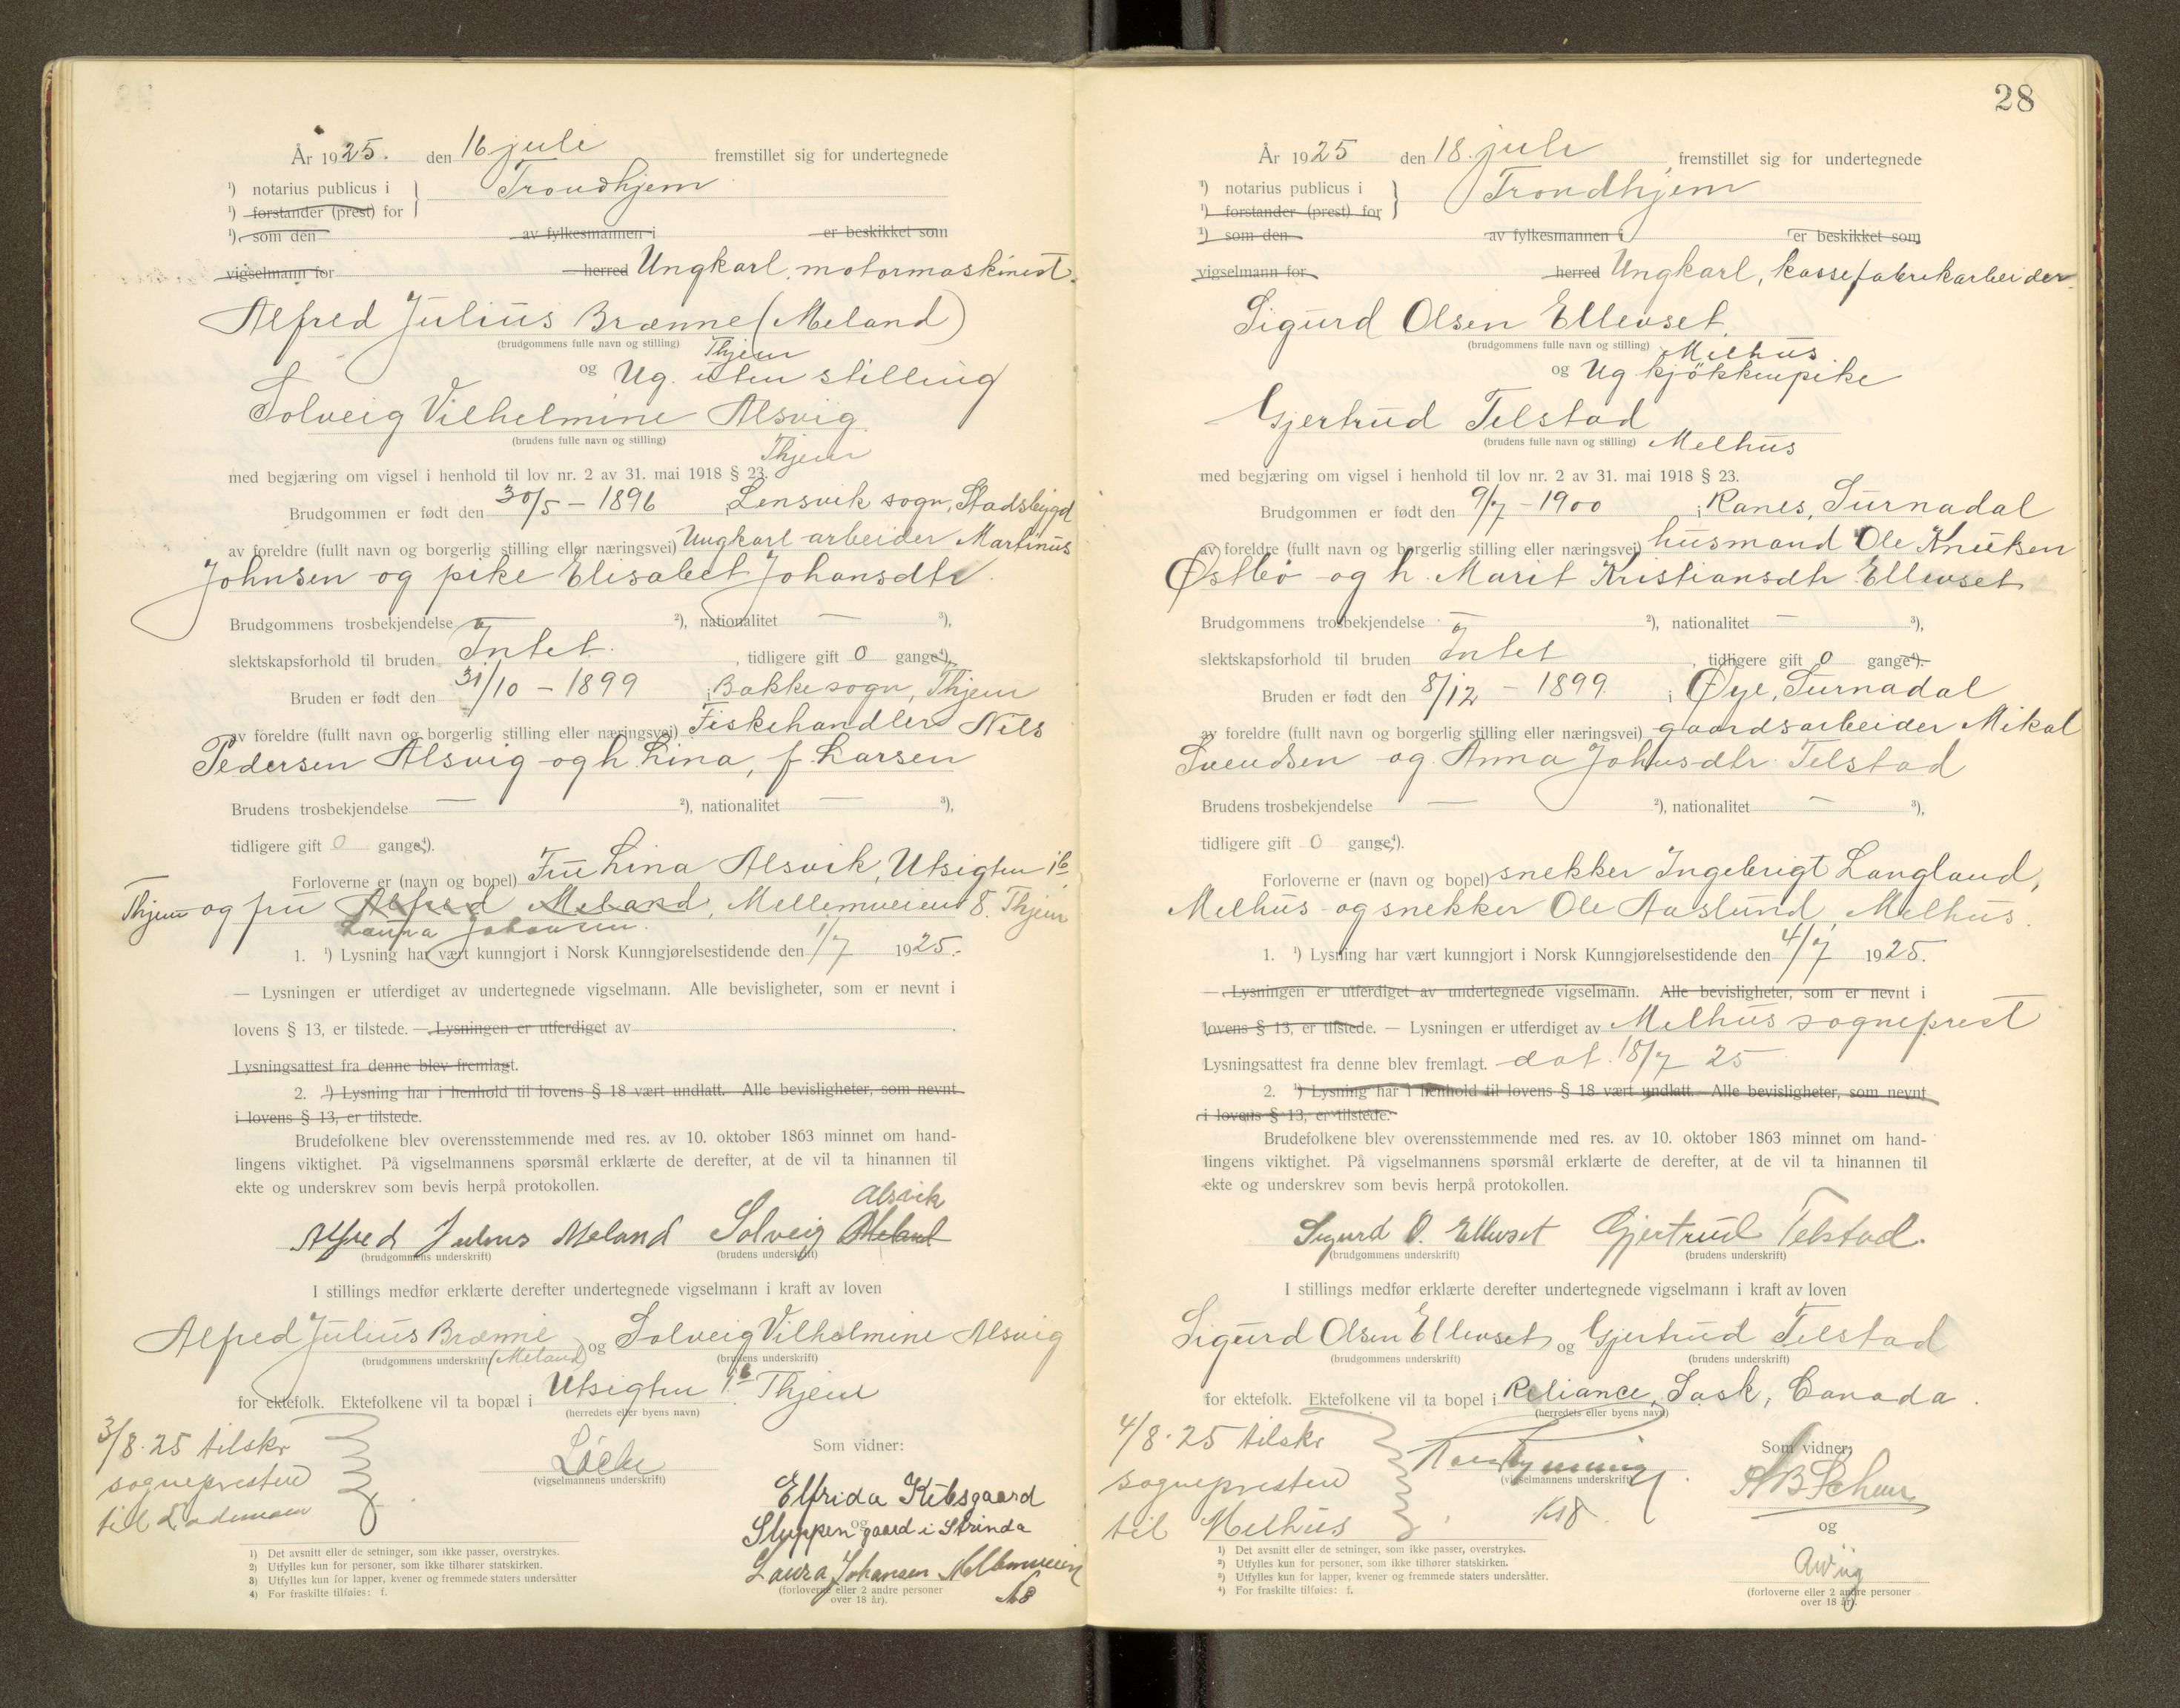 År 1925. den 16 juli fremstillet sig for undertegnede
¹) notarius publicus i } Trondhjem
¹) forstander (prest) for
¹) som den av fylkesmannen i er beskikket som
vigselmann for herred Ungkarl, motormaskinist
Alfred Julius Brænne (Meland)
(brudgommens fulle navn og stilling) Thjem
og Ug. uten stilling
Solveig Vilhelmine Alsvig
(brudens fulle navn og stilling)
Thjem
med begjæring om vigsel i henhold til lov nr. 2 av 31. mai 1918 § 23.
Brudgommen er født den 30/5 - 1896 i Lensvik sogn, Stadsbygd
av foreldre (fullt navn og borgerlig stilling eller næringsvei) Ungkarl arbeider Martinus
Johnsen og pike Elisabet Johansdtr.
Brudgommens trosbekjendelse — ²), nationalitet — ³),
slektskapsforhold til bruden Intet, tidligere gift 0 gange⁴).
Bruden er født den 31/10 - 1899 i Bakke sogn, Thjem
av foreldre (fullt navn og borgerlig stilling eller næringsvei) Fiskehandler Nils
Pedersen Alsvig og h. Lina, f. Larsen
Brudens trosbekjendelse — ²), nationalitet — ³),
tidligere gift 0 gange⁴).
Forloverne er (navn og bopel) Fru Lina Alsvik, Utsigten 1b
Thjem og fru Alfred Meland, Mellemveien 8. Thjem
Laura Johansen.
1. ¹) Lysning har vært kunngjort i Norsk Kunngjørelsestidende den 1/7 1925.
— Lysningen er utferdiget av undertegnede vigselmann. Alle bevisligheter, som er nevnt i
lovens § 13, er tilstede. — Lysningen er utferdiget av
Lysningsattest fra denne blev fremlagt.
2. ¹) Lysning har i henhold til lovens § 18 vært undlatt. Alle bevisligheter, som nevnt
i lovens § 13, er tilstede.
Brudefolkene blev overensstemmende med res. av 10. oktober 1863 minnet om hand-
lingens viktighet. På vigselmannens spørsmål erklærte de derefter, at de vil ta hinannen til
ekte og underskrev som bevis herpå protokollen.
Alsvik
Alfred Julius Meland Solveig Meland
(brudgommens underskrift) (brudens underskrift)
I stillings medfør erklærte derefter undertegnede vigselmann i kraft av loven
Alfred Julius Brænne og Solveig Vilhelmine Alsvig
(brudgommens underskrift) (Meland) (brudens underskrift)
for ektefolk. Ektefolkene vil ta bopæl i Utsigten 1b Thjem
(herredets eller byens navn)
3/8-25 tilskr.
sognepresten
til Lademoen
(vigselmannens underskrift)
Som vidner:
Elfrida Kibsgaard
Sluppen gaard i Strinda
og
Laura Johansen Mellemveien
№8
(forloverne eller 2 andre personer
over 18 år).
1) Det avsnitt eller de setninger, som ikke passer, overstrykes.
2) Utfylles kun for personer, som ikke tilhører statskirken.
3) Utfylles kun for lapper, kvener og fremmede staters undersåtter
4) For fraskilte tilføies: f.
28
År 1925 den 18. juli fremstillet sig for undertegnede
¹) notarius publicus i } Trondhjem
¹) forstander (prest) for
¹) som den av fylkesmannen i er beskikket som
vigselmann for herred Ungkarl, kassefabrikarbeider
Sigurd Olsen Ellevset,
(brudgommens fulle navn og stilling) Melhus.
og Ug kjøkkenpike
Gjertrud Telstad
(brudens fulle navn og stilling) Melhus
med begjæring om vigsel i henhold til lov nr. 2 av 31. mai 1918 § 23.
Brudgommen er født den 9/7 - 1900 i Ranes, Surnadal
av foreldre (fullt navn og borgerlig stilling eller næringsvei) husmand Ole Knutsen
Østbø og h. Marit Kristiansdtr Ellevset
Brudgommens trosbekjendelse — ²), nationalitet — ³),
slektskapsforhold til bruden Intet, tidligere gift 0 gange⁴).
Bruden er født den 8/12 - 1899 i Øye, Surnadal
av foreldre (fullt navn og borgerlig stilling eller næringsvei) gaardsarbeider Mikal
Svendsen og Anna Johnsdtr Telstad
Brudens trosbekjendelse — ²), nationalitet — ³),
tidligere gift 0 gange⁴).
Forloverne er (navn og bopel) snekker Ingebrigt Langland,
Melhus og snekker Ole Aaslund, Melhus.
1. ¹) Lysning har vært kunngjort i Norsk Kunngjørelsestidende den 4/7 1925.
— Lysningen er utferdiget av undertegnede vigselmann. Alle bevisligheter, som er nevnt i
lovens § 13, er tilstede. — Lysningen er utferdiget av Melhus sogneprest
Lysningsattest fra denne blev fremlagt. dat. 18/7 25
2. ¹) Lysning har i henhold til lovens § 18 vært undlatt. Alle bevisligheter, som nevnt
i lovens § 13, er tilstede.
Brudefolkene blev overensstemmende med res. av 10. oktober 1863 minnet om hand-
lingens viktighet. På vigselmannens spørsmål erklærte de derefter, at de vil ta hinannen til
ekte og underskrev som bevis herpå protokollen.
Sigurd O. Ellevset Gjertrud Telstad.
(brudgommens underskrift) (brudens underskrift)
I stillings medfør erklærte derefter undertegnede vigselmann i kraft av loven
Sigurd Olsen Ellevset og Gjertrud Telstad
(brudgommens underskrift) (brudens underskrift)
for ektefolk. Ektefolkene vil ta bopel i Reliance, Sask, Canada.
(herredets eller byens navn)
4/8-25 tilskr
sognepresten
til Melhus
(vigselmannens underskrift)
Som vidner:
og
(forloverne eller 2 andre personer
over 18 år).
1) Det avsnitt eller de setninger, som ikke passer, overstrykes.
2) Utfylles kun for personer, som ikke tilhører statskirken.
3) Utfylles kun for lapper, kvener og fremmede staters undersåtter.
4) For fraskilte tilføies: f.